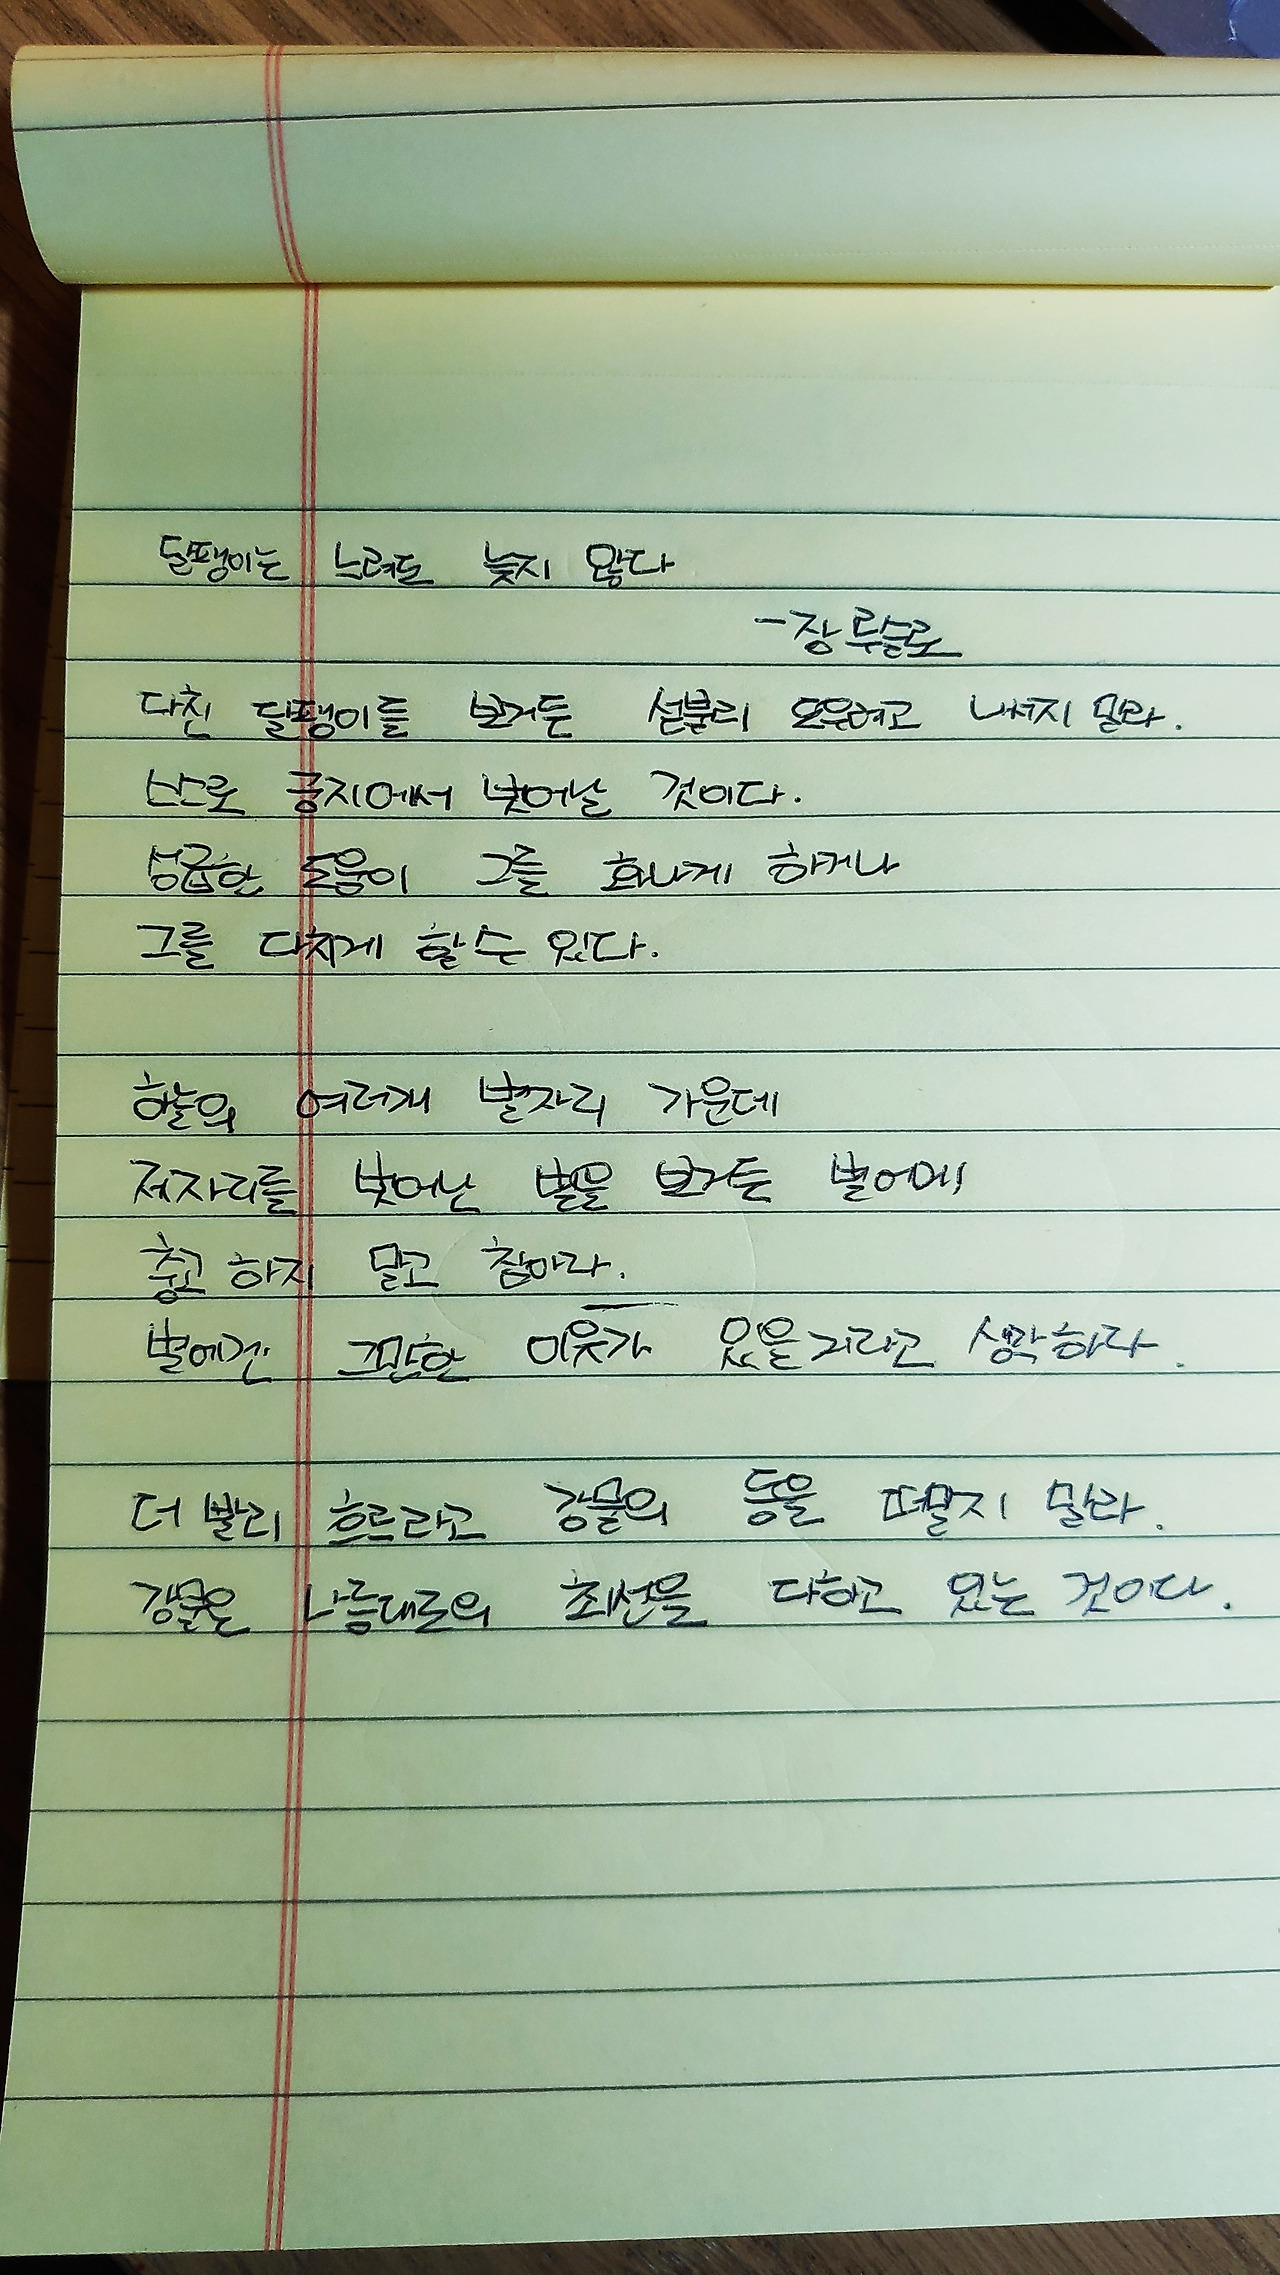 달팽이는 느려도 늦지 않다
-장 루슬로
다친 달팽이를 보거든 섣불리 도우려고 나서지 말라.
스스로 궁지에서 벗어날 것이다.
성급한 도움이 그를 화나게 하거나
그를 다치게 할 수 있다.
하늘의 여러개 별자리 가운데
제자리를 벗어난 별을 보거든 별에게
충고 하지 말고 참아라.
별에겐 그만한 이웃가 있을거라고 생각하라.
더 빨리 흐르라고 강물의 등을 떠밀지 말라.
강물은 나름대로의 최선을 다하고 있는 것이다.